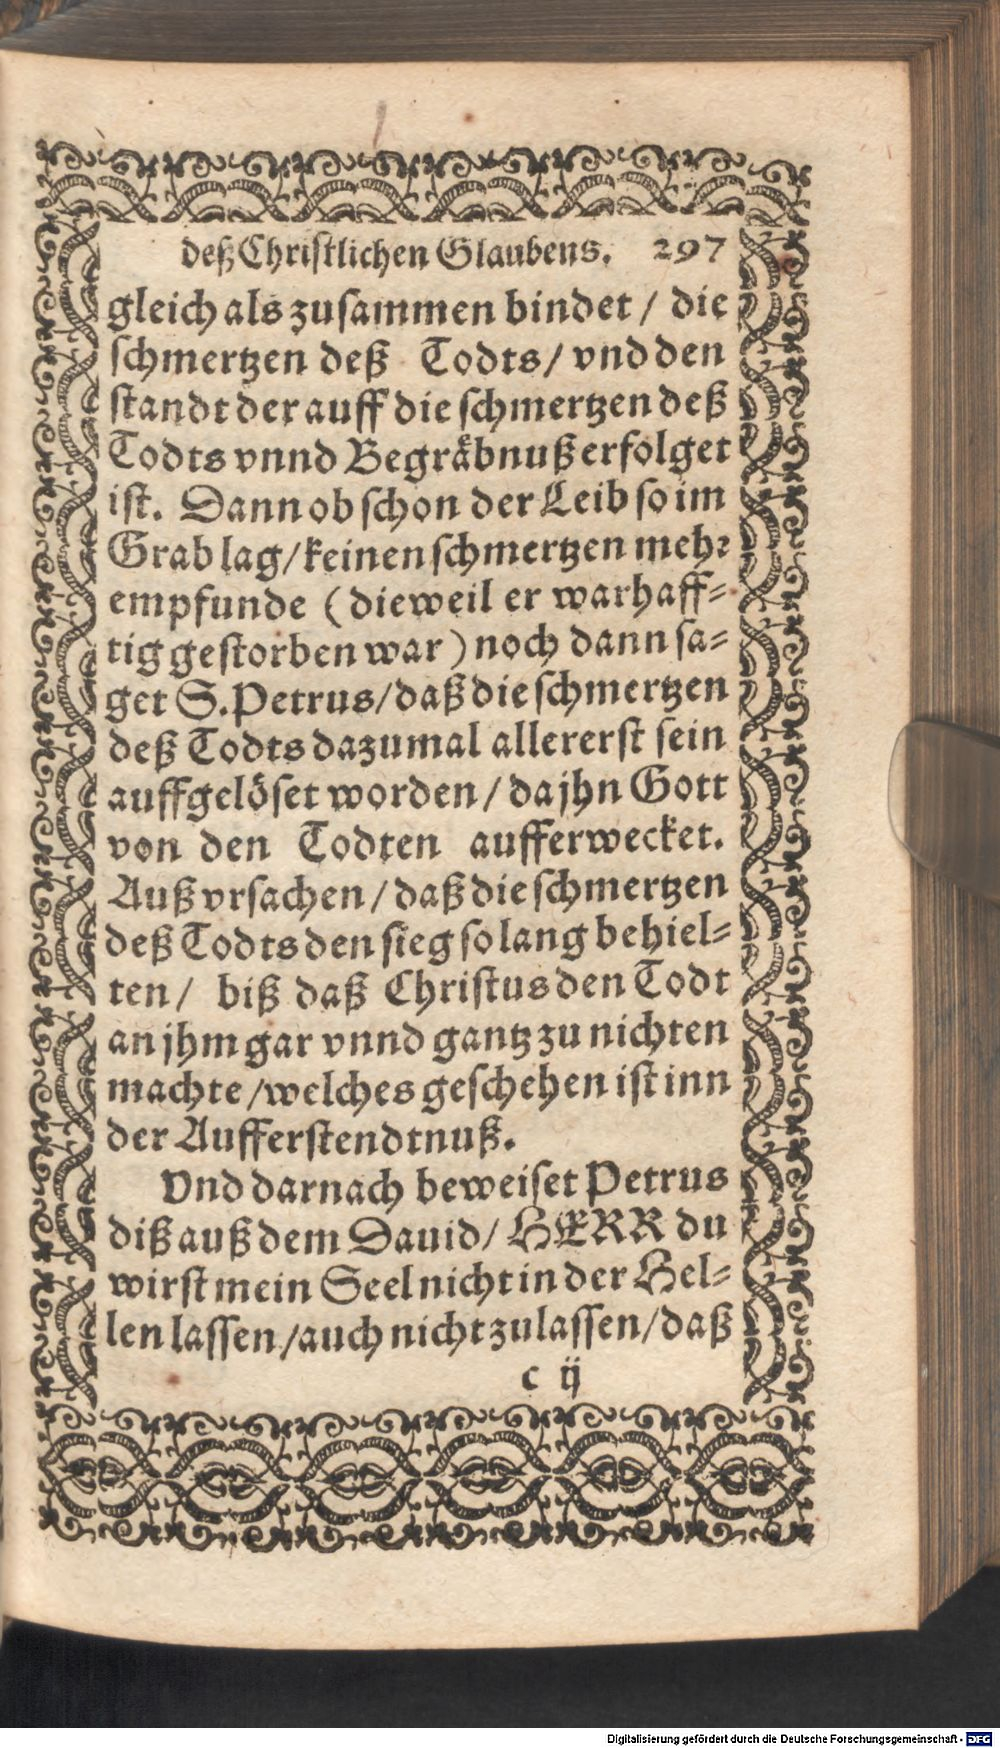 deß Christlichen Glaubens. 297
gleich als zusammen bindet / die
schmertzen deß Todts / vnd den
standt der auff die schmertzen deß
Todts vnnd Begräbnuß erfolget
ist. Dann ob schon der Leib so im
Grab lag / keinen schmertzen mehr
empfunde (dieweil er warhaff-
tig gestorben war) noch dann sa-
get S. Petrus / daß die schmertzen
deß Todts dazumal allererst sein
auffgelöset worden / da jhn Gott
von den Todten aufferwecket.
Auß vrsachen / daß die schmertzen
deß Todts den sieg so lang behiel-
ten / biß daß Christus den Todt
an jhm gar vnnd gantz zu nichten
machte / welches geschehen ist inn
der Aufferstendtnuß.
Vnd darnach beweiset Petrus
diß auß dem Dauid / HERR du
wirst mein Seel nicht in der Hel-
len lassen / auch nicht zulassen / daß
c ij
Digitalisierung gefördert durch die Deutsche Forschungsgemeinschaft - DFG